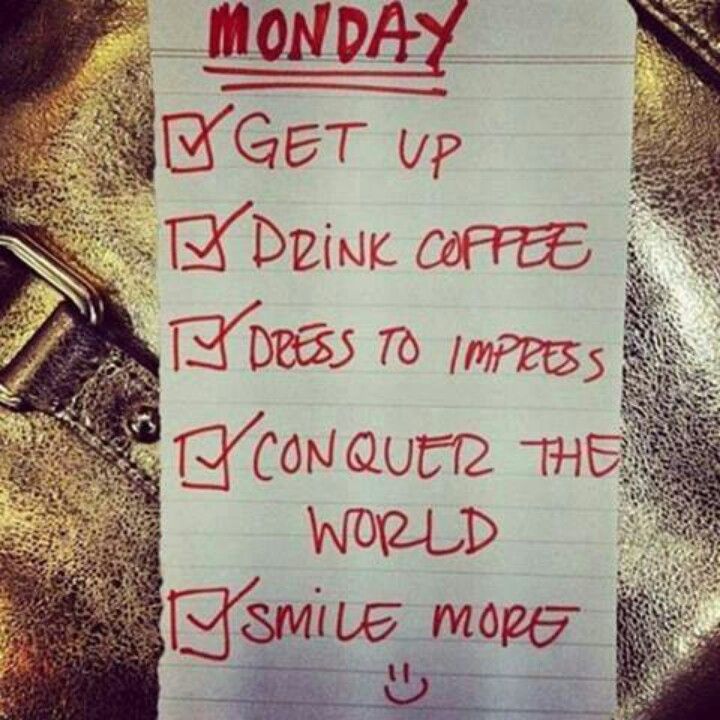 MONDAY
GET UP
DRINK COFFEE
DRESS TO IMPRESS
CONQUER THE
WORLD
SMILE MORE